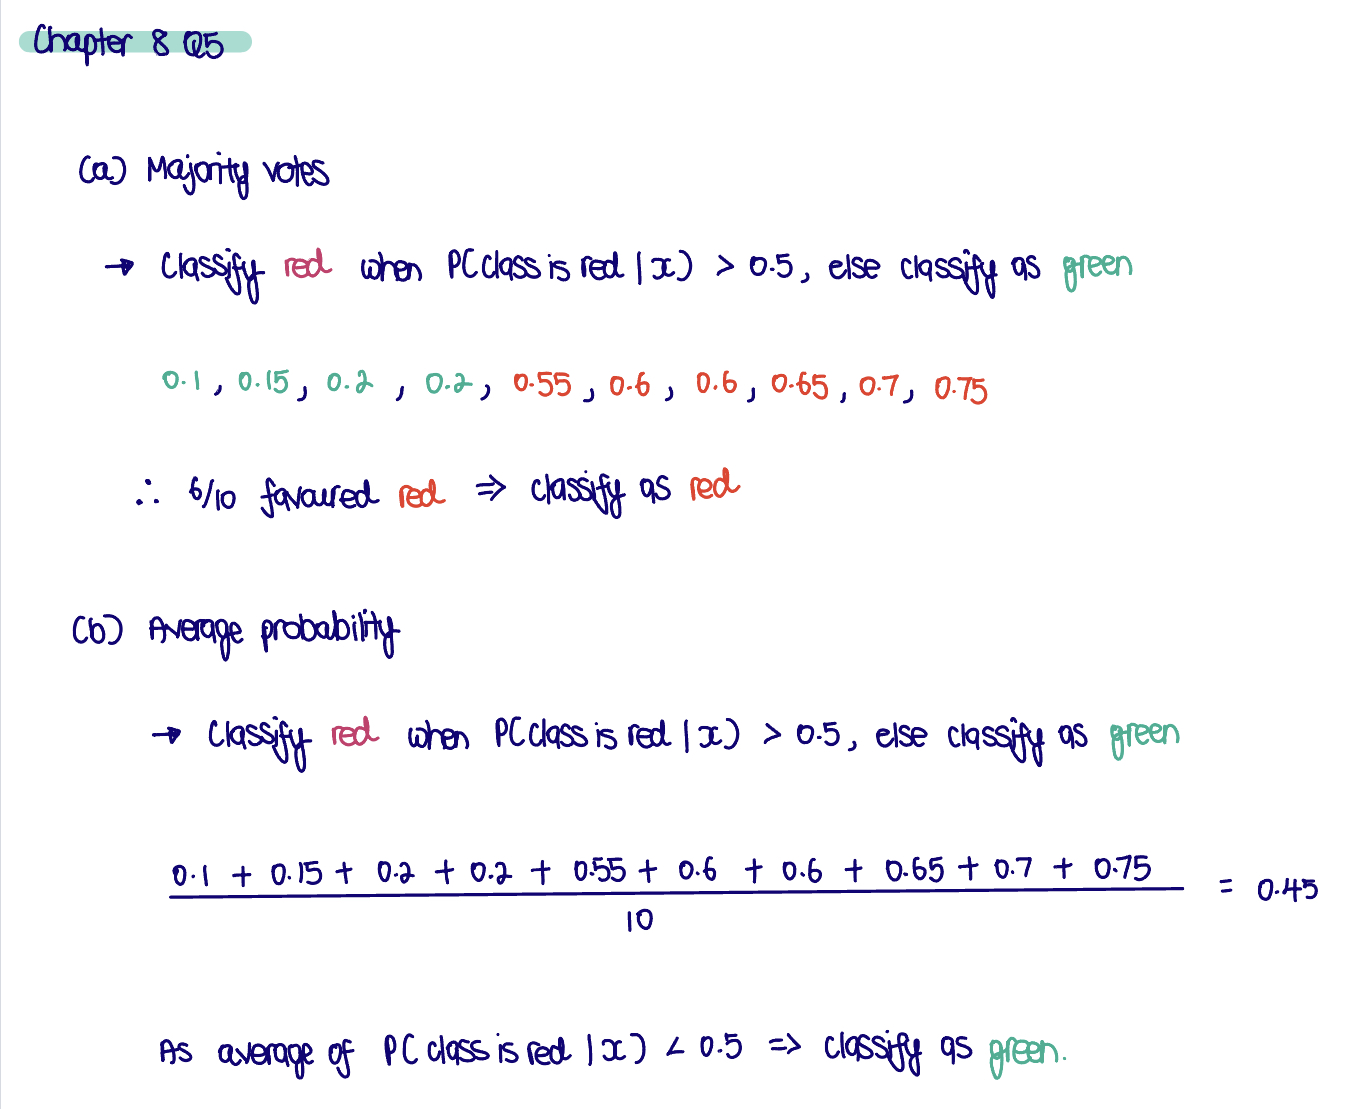 Chapter 8 Q5
(a) Majority votes
→ Classify red when P(class is red | x) > 0.5, else classify as green
0.1, 0.15, 0.2, 0.2, 0.55, 0.6, 0.6, 0.65, 0.7, 0.75
∴ 6/10 favoured red ⇒ classify as red
(b) Average probability
→ Classify red when P(class is red | x) > 0.5, else classify as green
0.1 + 0.15 + 0.2 + 0.2 + 0.55 + 0.6 + 0.6 + 0.65 + 0.7 + 0.75
10
= 0.45
As average of P(class is red | x) < 0.5 ⇒ classify as green.